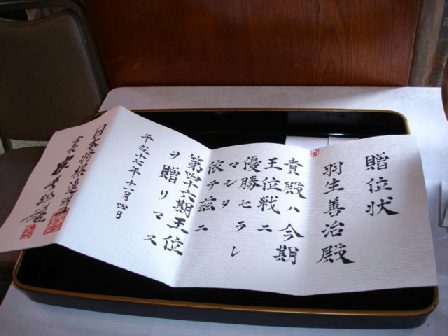 贈位状
羽生善治殿
貴殿ハ今期
王位戦ニ
優勝セラレ
マシタ
依テ茲ニ
第四十六期王位
ヲ贈リマス
平成十七年十一月四日
日本将棋連盟